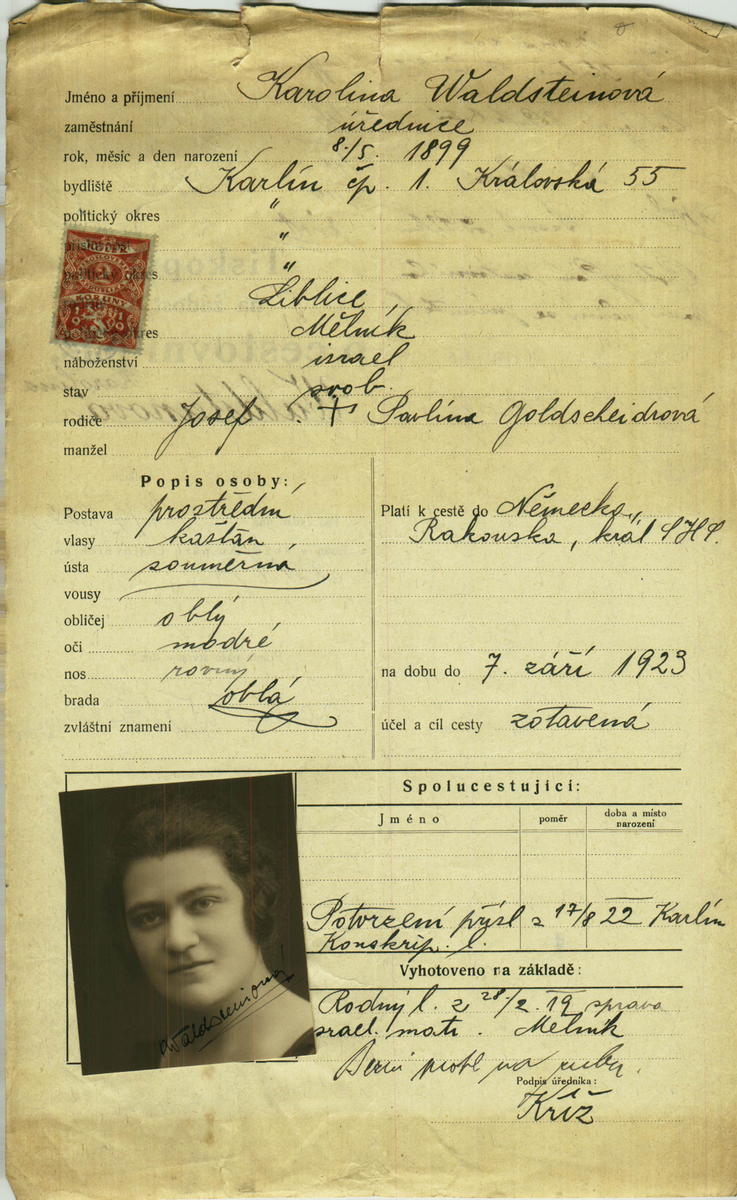 Jméno a příjmení Karolina Waldsteinová
zaměstnání úřednice
rok, měsíc a den narození 8./5. 1899
bydliště Karlín čp. 1. Královská 55
politický okres "
"
politický okres "
Liblice
okres Mělník
náboženství israel
stav svob.
rodiče Josef + Pavlína Goldscheidrová
manžel
Popis osoby:
Postava prostřední
vlasy kaštan
ústa souměrná
vousy
obličej oblý
oči modré
nos rovný
brada oblá
zvláštní znamení
Platí k cestě do Německa,
Rakouska, král SHS.
na dobu do 7. září 1923
účel a cíl cesty zotavená
Spolucestující:
Jméno poměr doba a místo narození
Potvrzení přísl z 17/8 22 Karlín
Konskrip. l.
Vyhotoveno na základě:
Rodný l. z 28/2. 19 správa
israel. matr. Mělník
na rubu.
Podpis úředníka:
Kříž
Waldsteinová
KORUNY